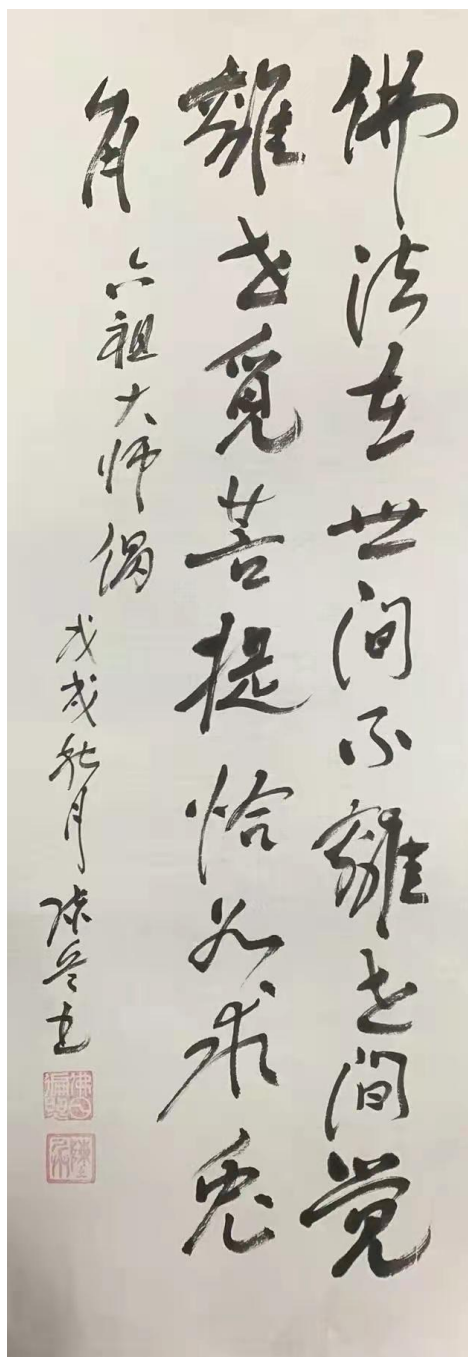 佛法在世间不離世间觉
離世觅菩提恰如求兔
角
六祖大师偈
戊戌秋月
陈兵书